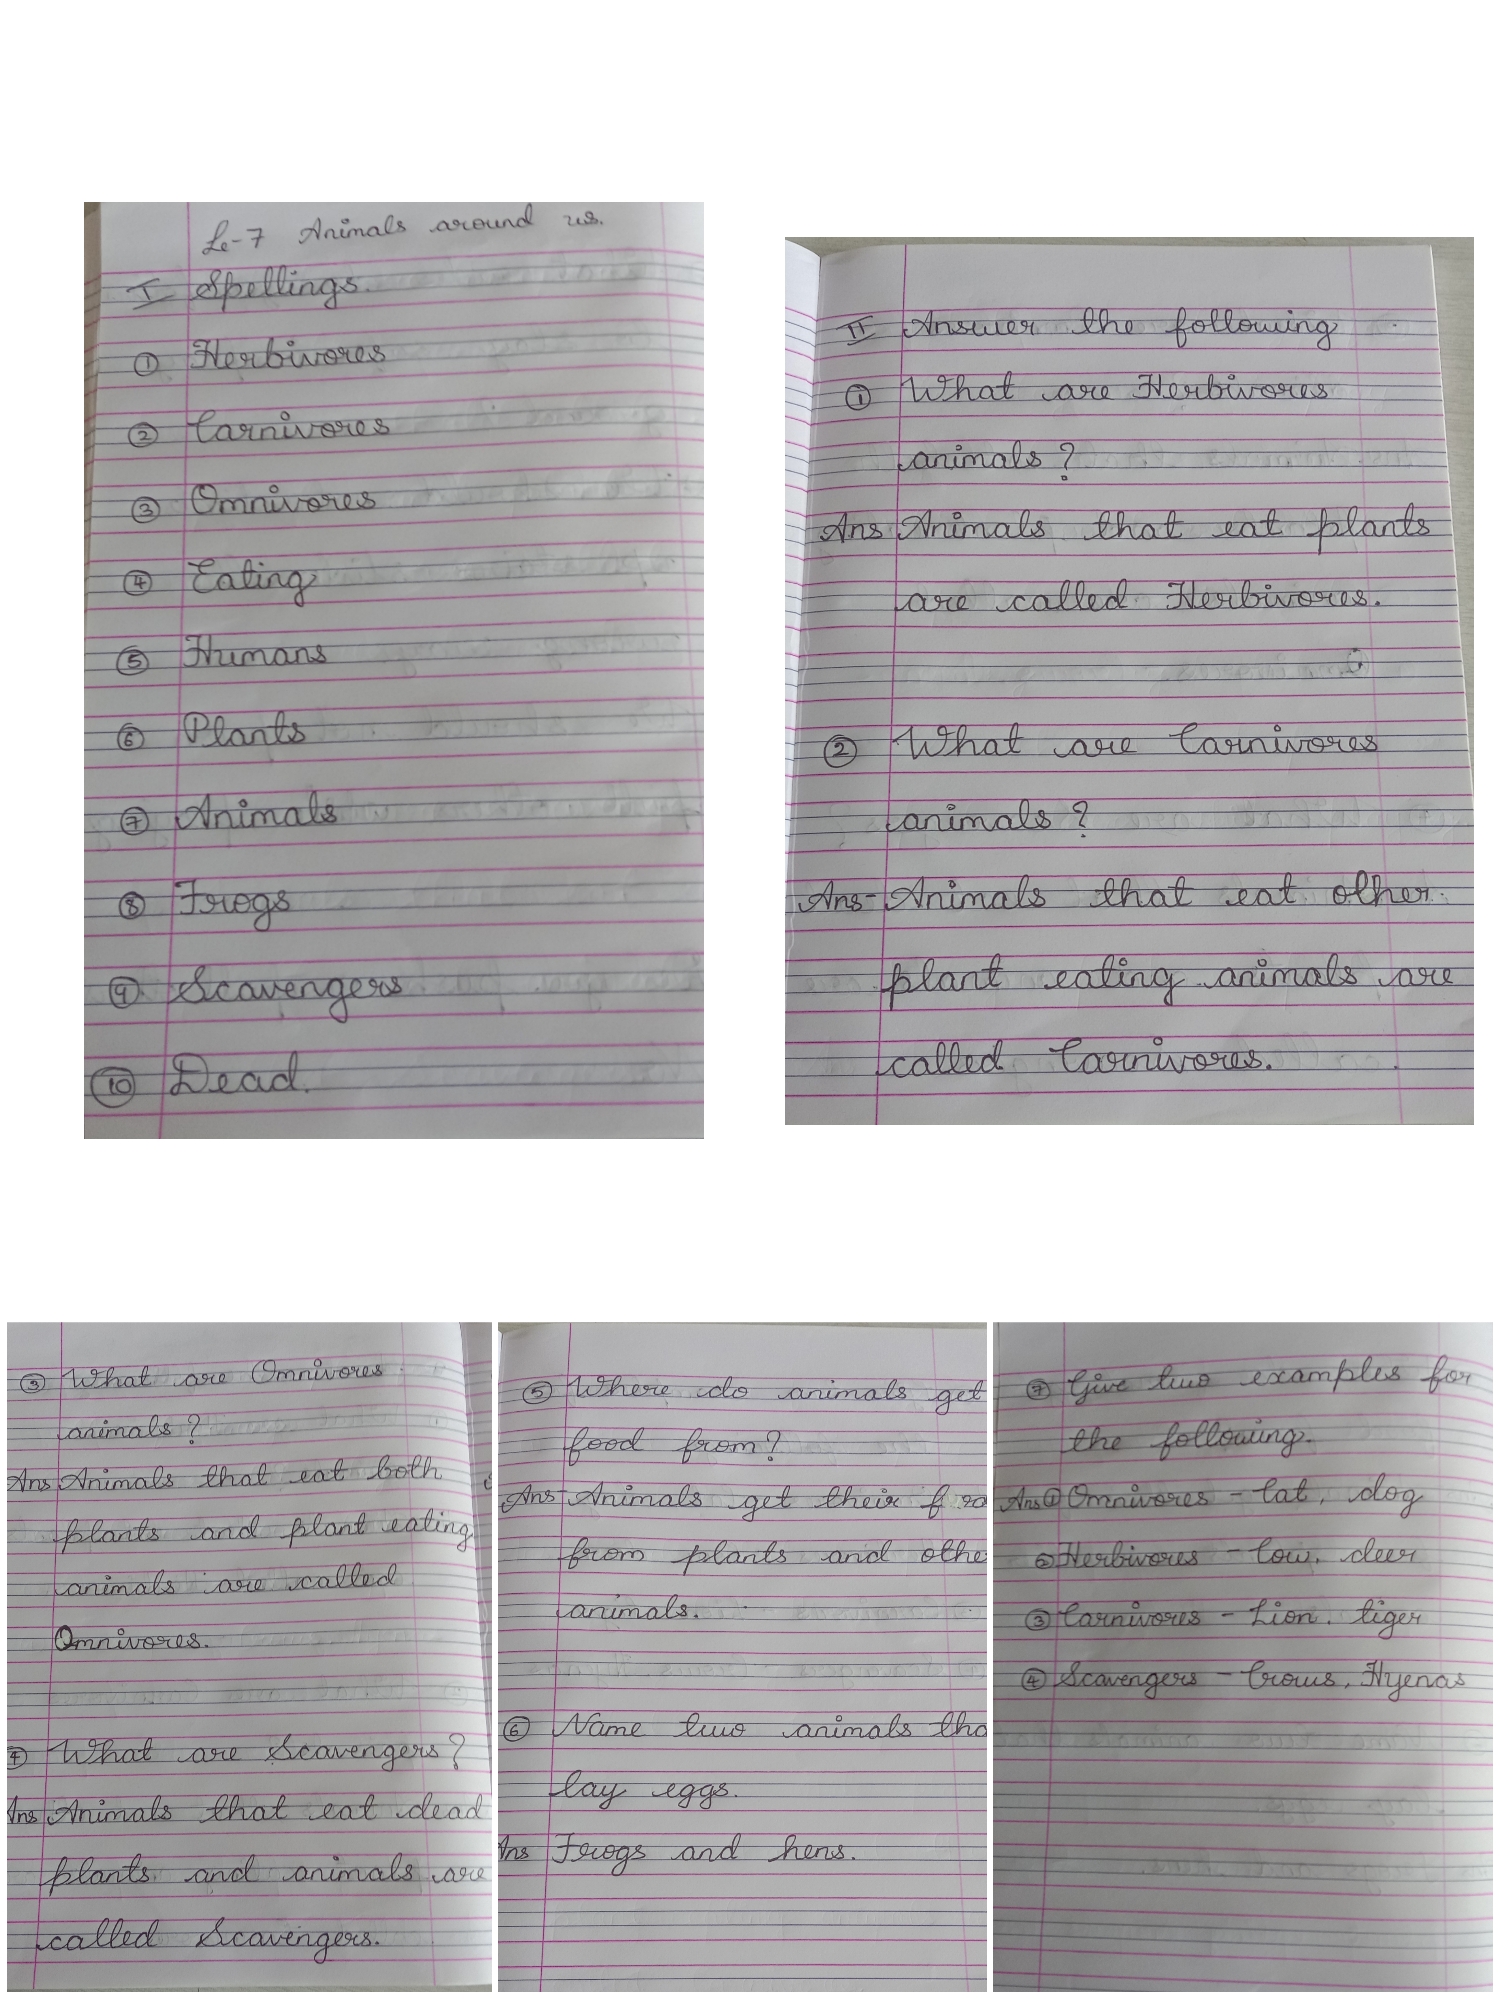 Le-7 Animals around us.
I Spellings.
① Herbivores
② Carnivores
③ Omnivores
④ Eating
⑤ Humans
⑥ Plants
⑦ Animals
⑧ Frogs
⑨ Scavengers
⑩ Dead.
II Answer the following
① What are Herbivores
animals?
Ans Animals that eat plants
are called Herbivores.
② What are Carnivores
animals?
Ans- Animals that eat other
plant eating animals are
called Carnivores.
③ What are Omnivores
animals?
Ans Animals that eat both
plants and plant eating
animals are called
Omnivores.
④ What are Scavengers?
Ans Animals that eat dead
plants and animals are
called Scavengers.
⑤ Where do animals get
food from?
Ans- Animals get their foo
from plants and othe
animals.
⑥ Name two animals tha
lay eggs.
Ans Frogs and hens.
⑦ Give two examples for
the following.
Ans ① Omnivores - Cat, dog
② Herbivores - Cow, deer
③ Carnivores - Lion, tiger
④ Scavengers - Crows, Hyenas